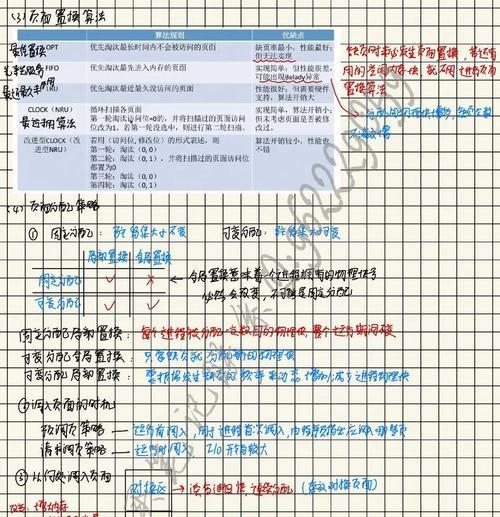 (3) 页面置换算法
算法规则 优缺点
最佳置换 OPT 优先淘汰最长时间内不会被访问的页面 缺页率最小，性能最好；但无法实现
先进先出 FIFO 优先淘汰最先进入内存的页面 实现简单；但性能很差，可能出现Belady异常
最近最久未用 LRU 优先淘汰最近最久没访问的页面 性能很好；但需要硬件支持，算法开销大
最近未用算法 CLOCK（NRU） 循环扫描各页面
第一轮淘汰访问位=0的，并将扫描过的页面访问位改为1。若第一轮没选中，则进行第二轮扫描。 实现简单，算法开销小；但未考虑页面是否被修改过。
改进型CLOCK（改进型NRU） 若用(访问位, 修改位)的形式表述，则
第一轮：淘汰（0,0）
第二轮：淘汰（0,1），并将扫描过的页面访问位都置为0
第三轮：淘汰（0,0）
第四轮：淘汰（0,1） 算法开销较小，性能也不错
缺页时未必发生页面置换，若还有
可用的空闲内存块，就不用进行页面
置换算法
(4) 页面分配策略
① 固定分配：驻留集大小不变 可变分配：驻留集大小可变
局部置换 全局置换
固定分配 ✓ ×
可变分配 ✓ ✓
全局置换意味着一个进程拥有的物理块号
必然会改变，不可能是固定分配
固定分配局部置换：每个进程被分配一定数目的物理块，整个运行期间不变
可变分配全局置换：只要缺页就分配新的物理块
可变分配局部置换：要根据发生缺页的频率来动态增加/减少进程物理块
②调入页面的时机
预调页策略 → 运行前调入，用于进程首次调入，由程序员指出应调入哪些页
请求调页策略 → 运行时调入 I/O开销较大
③ 从何处调入页面
对换区 → 读写速度快，连续分配（存放对换页面）